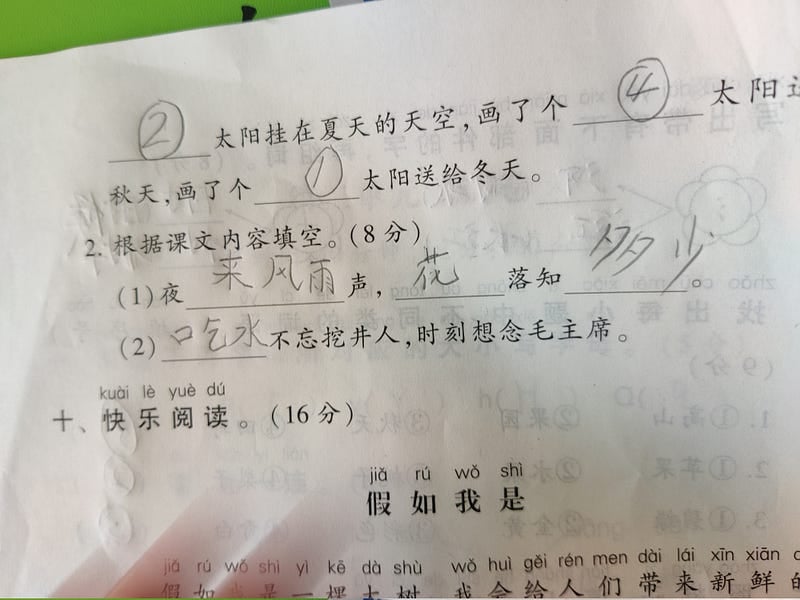 ② 太阳挂在夏天的天空，画了个 ④ 太阳送
秋天，画了个 ① 太阳送给冬天。
2. 根据课文内容填空。（8 分）
（1）夜 来风雨 声，花 落知 多少 。
（2）口吃水 不忘挖井人，时刻想念毛主席。
kuài lè yuè dú
十、快乐阅读。（16 分）
jiǎ rú wǒ shì
假如我是
jiǎ rú wǒ shì yì kē dà shù wǒ huì gěi rén men dài lái xīn xiān
假如我是一棵大树，我会给人们带来新鲜的